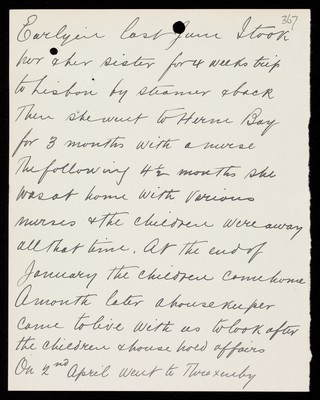 367
Early in last June I took
her & her sister for 4 weeks trip
to Lisbon by steamer & back
Then she went to Herne Bay
for 3 months with a nurse
The following 4½ months she
was at home with various
nurses & the children were away
all that time. At the end of
January the children come home
A month later a housekeeper
came to live with us to look after
the children & house hold affairs
On 2nd April went to